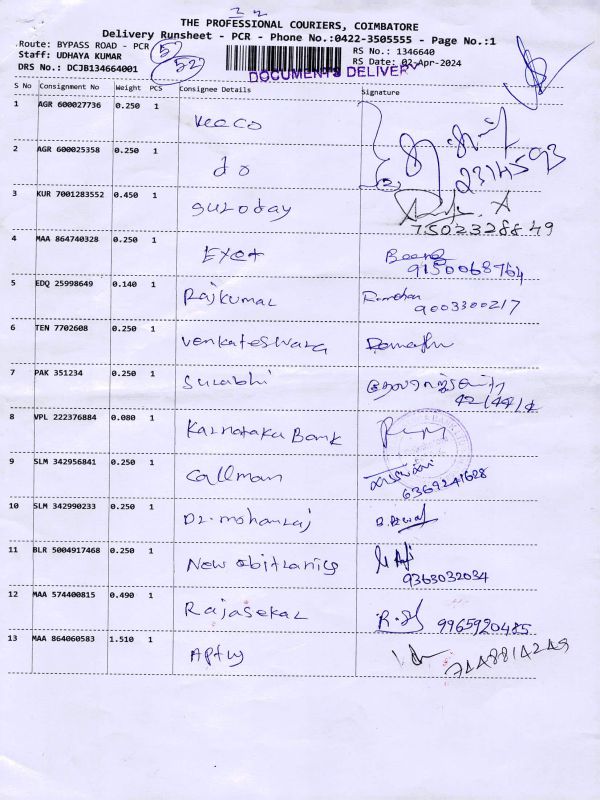 THE PROFESSIONAL COURIERS, COIMBATORE
Delivery Runsheet - PCR - Phone No.:0422-3505555 - Page No.:1
Route: BYPASS ROAD - PCR
RS No.: 1346640
Staff: UDHAYA KUMAR
RS Date: 02-Apr-2024
DRS No.: DCJB134664001
52
DOCUMENTS DELIVERY
S No Consignment No Weight PCS Consignee Details Signature
1 AGR 600027736 0.250 1
2 AGR 600025358 0.250 1 do
2314593
3 KUR 7001283552 0.450 1 suroday
7502328849
4 MAA 864740328 0.250 1
9150068764
5 EDQ 25998649 0.140 1 Rajkumar
9003300217
6 TEN 7702608 0.250 1 venkateswara
7 PAK 351234 0.250 1 Surabhi
8 VPL 222376884 0.080 1 Karnataka Bank
9 SLM 342956841 0.250 1 Callman
6369241628
10 SLM 342990233 0.250 1 Dr. mohanraj
11 BLR 5004917468 0.250 1 New
9363032034
12 MAA 574400815 0.490 1 Rajasekar
9965920485
13 MAA 864060583 1.510 1